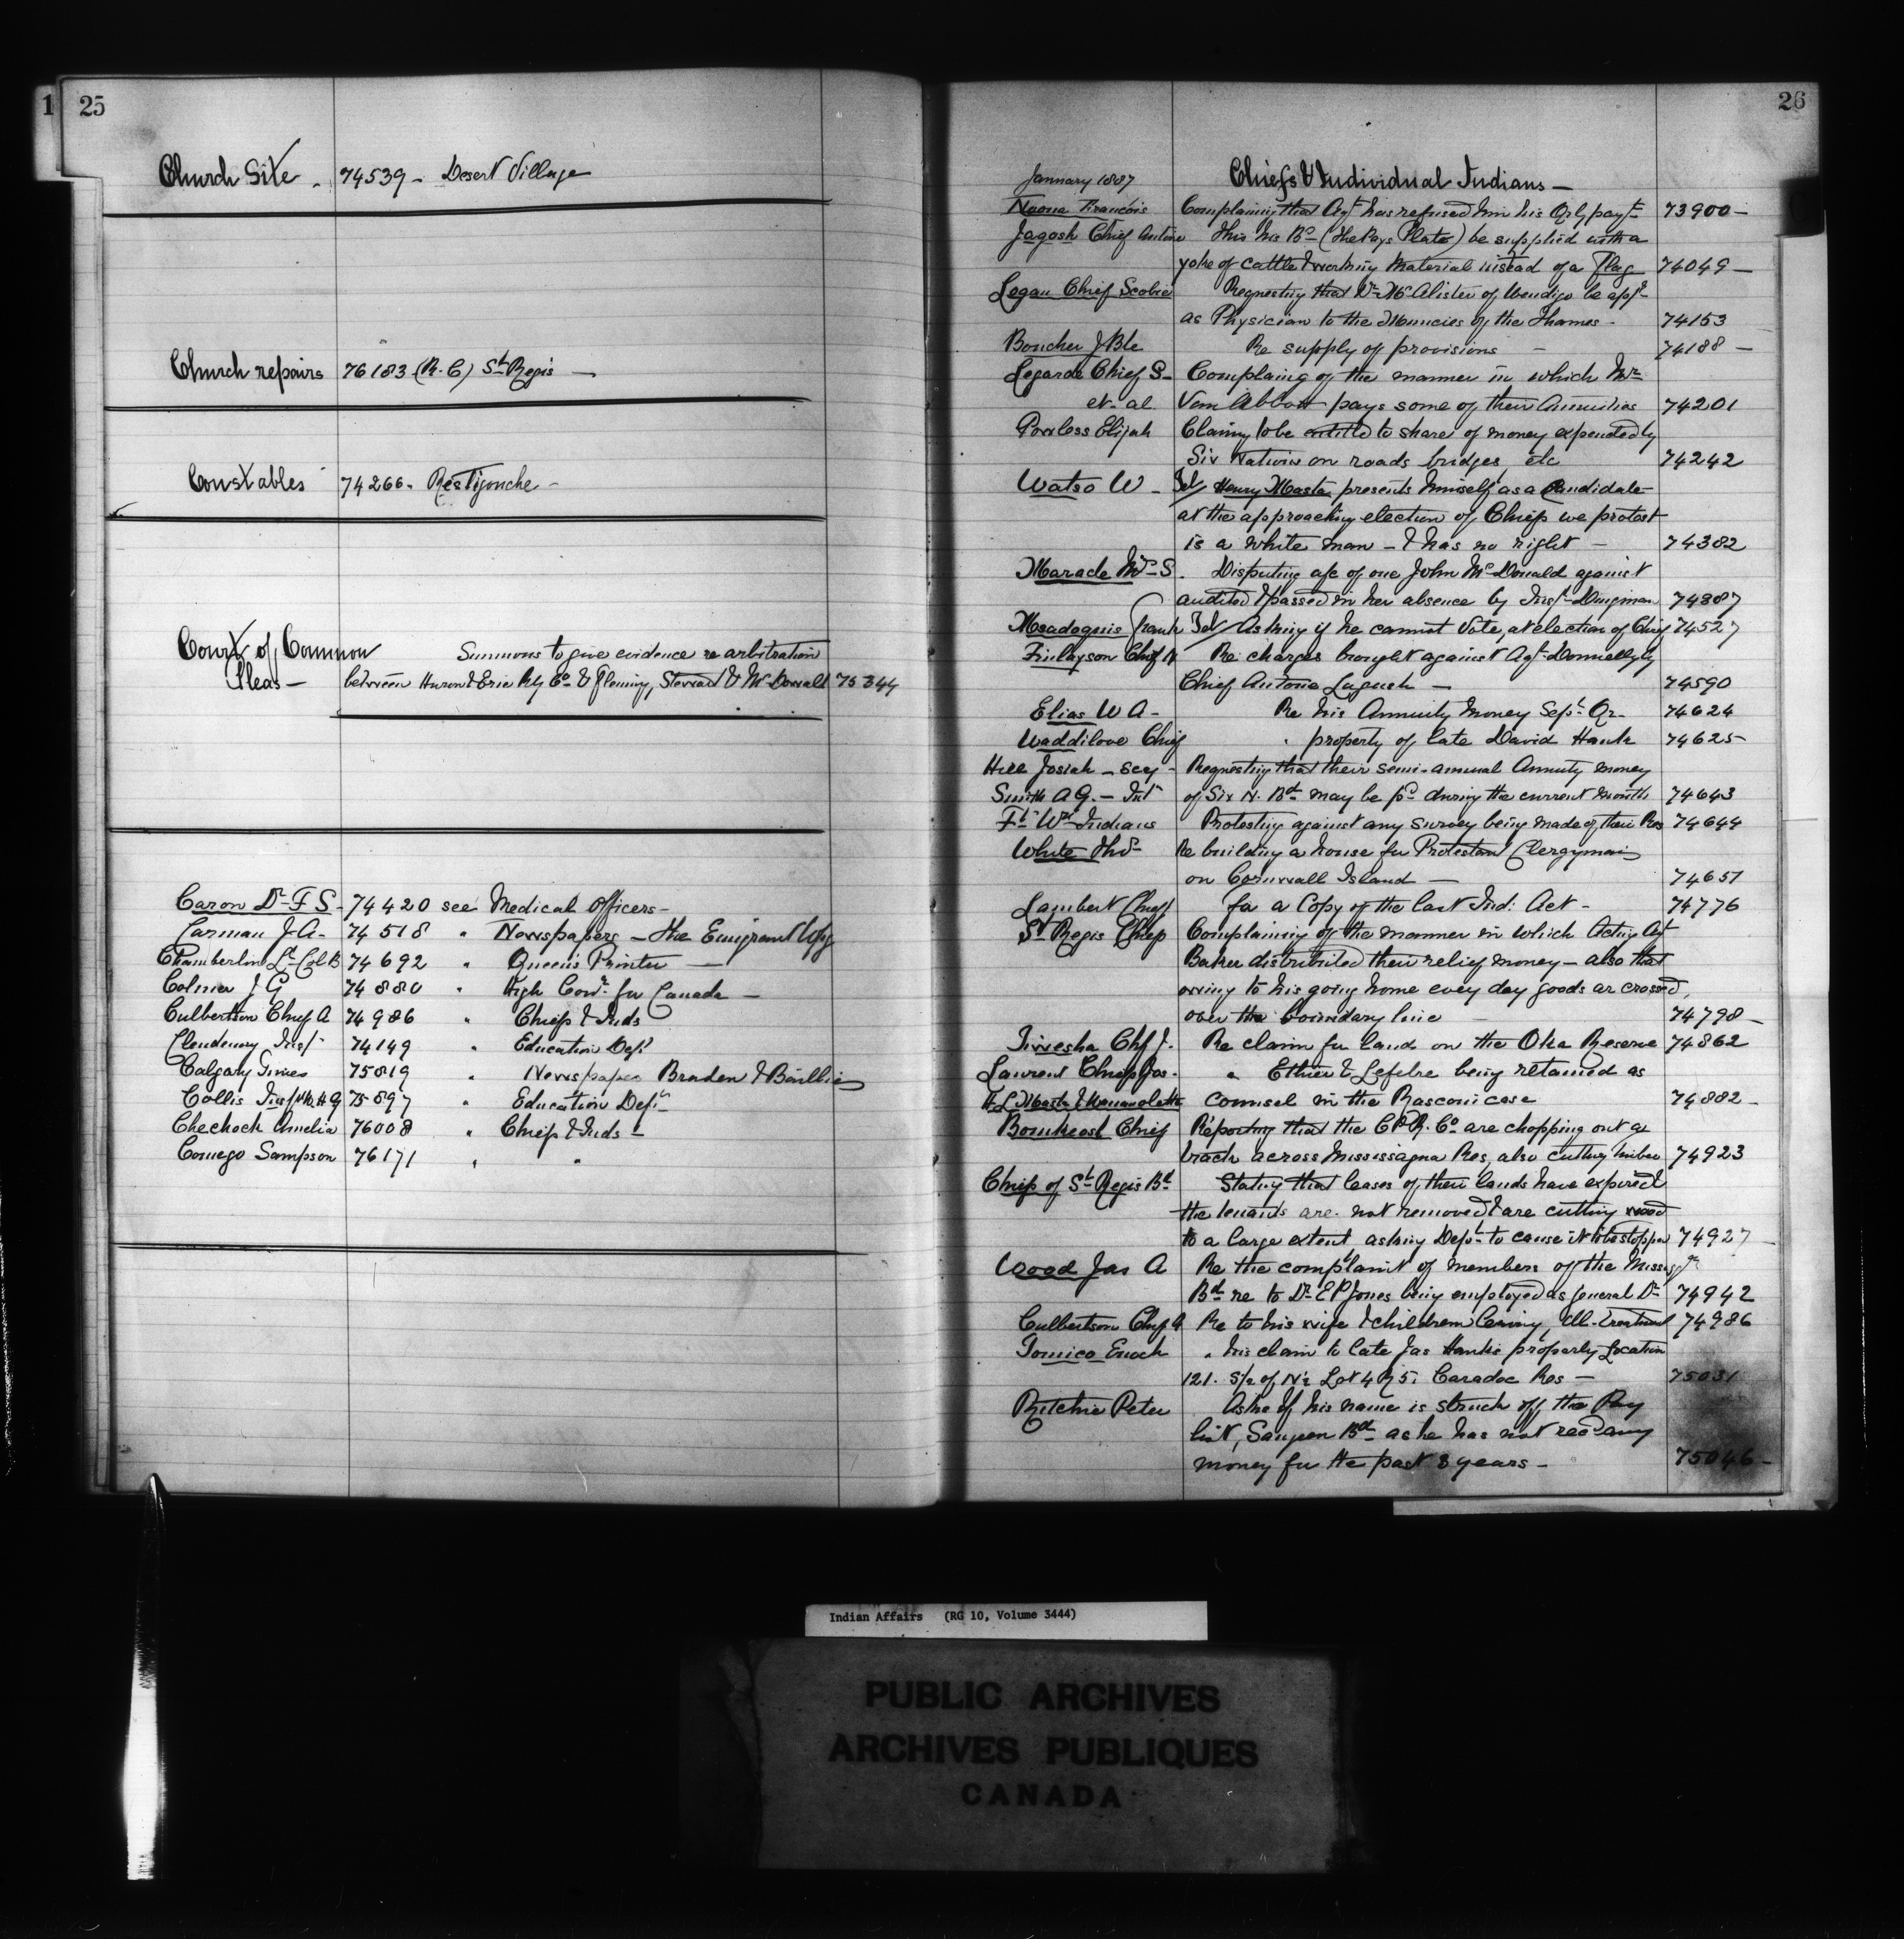 1 25
Church Site - 74539 - Desert Village
Church repairs 76183 (R.C) St Regis —
Constables 74266 - Restigouche -
Court of Common Summons to give evidence re arbitration
Pleas — between Huron & Erie Rly Co & Fleming, & McDonald 75344
Caron Dr F S - 74420 see Medical Officers -
Carman J. A - 74518 " Newspapers - the Emigrant Wpg
Chamberlin Lt Col B 74692 " Queen's Printer —
Colmer J G 74880 " High Comr for Canada —
Culbertson Chief A 74986 " Chiefs & Inds
Clendenny Insp 74149 " Education Dept
Calgary Times 75819 " Newspapers Braden & Baillie
Collis 75897 " Education Dept
Chechock Amelia 76008 " Chiefs & Inds -
Comego Sampson 76171 " "
26
January 1887 Chiefs & Individual Indians —
François Complaining that Agt has refused him his Qrly payt 73900 —
Chief Antoine This his Bd (the Pays Plats) be supplied with a
yoke of cattle & working material instead of a Flag 74049 —
Logan Chief Scobie Requesting that Dr McAlister of Wendigo be appd
as Physician to the Muncies of the Thames - 74153
Boucher J Bte Re supply of provisions - 74188 —
Legarde Chief S - Complaing of the manner in which Mr
et al Van Abbott pays some of their Annuities 74201
Powless Elijah Claimg to be entitld to share of money expended by
Six Nations on roads bridges, etc 74242
Watso W - Tel/ Henry Masta presents himself as a Candidate
at the approaching election of Chiefs we protest
is a white man - & has no right - 74382
Maracle Mrs S. Disputing a/c of one John McDonald against
audited & passed in her absence by Inspr Dingman 74387
Msadoquis Frank Tel/ Asking if he cannot Vote, at election of Chief 74527
Finlayson Chief N Re charges brought against Agt Donnelly by
Chief Antoine — 74590
Elias W A - Re his Annuity Money Sept Qr - 74624
Waddilove Chief " property of late David Hank 74625
Hill Josiah - secy - Requesting that their semi-annual Annuity money
Smith A G. - Int of Six N. Bd may be pd during the current month 74643
Ft Wm Indians Protesting against any survey being made of their Res 74644
White Thos Re building a house for Protestant Clergyman
on Cornwall Island — 74651
Lambert Chief for a Copy of the last Ind: Act - 74776
St Regis Chief Complaining of the manner in which Acting Agt
Baker distributed their relief money - also that
owing to his going home every day goods ar crossed
over the boundary line - 74798 —
Tiwesha Chf J. Re claim for land on the Oka Reserve 74862
Laurent Chief Jos. " Ethier & Lefebre being retained as
H L Masta & Wawanolette counsel in the Rasconi case 74882 —
Bomkeosh Chief Reporting that the C P R. Co are chopping out a
track across Mississagua Res, also cutting timber 74923
Chiefs of St Regis Bd Stating that leases of their lands have expired
the tenants are not removed & are cutting wood
to a large extent asking Dept to cause it to be stopped 74927
Wood Jas A Re the complaint of members of the Missisga
Bd re to Dr E P Jones being employed as general Dr 74942
Culbertson Chief A Re to his wife & children leaving, Ill-treatment 74986
Tomico Enoch " his claim to late Jas Hank's property Location
121. S/2 of N/2 Lot 4 R 5, Caradoc Res — 75031
Ritchie Peter Asks if his name is struck off the Pay
list, Saugeen Bd as he has not recd any
money for the past 8 years - 75046 —
Indian Affairs (RG 10, Volume 3444)
PUBLIC ARCHIVES
ARCHIVES PUBLIQUES
CANADA